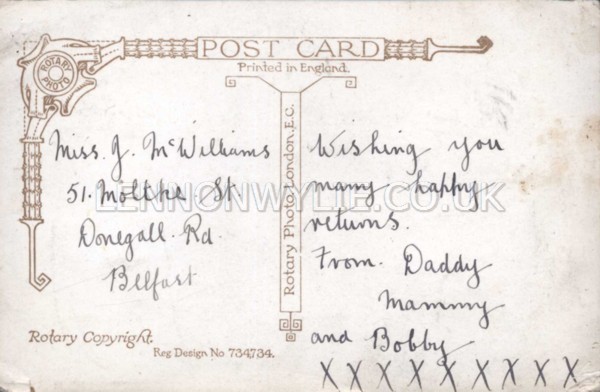 POST CARD
Printed in England.
ROTARY PHOTO
Miss. J. McWilliams
51. Moltke St
Donegall. Rd.
Belfast
Rotary Photo London, E.C.
Wishing you
many happy
returns.
From. Daddy
Mammy
and Bobby
X X X X X X X X X
LENNONWYLIE.CO.UK
Rotary Copyright.
Reg Design No 734734.